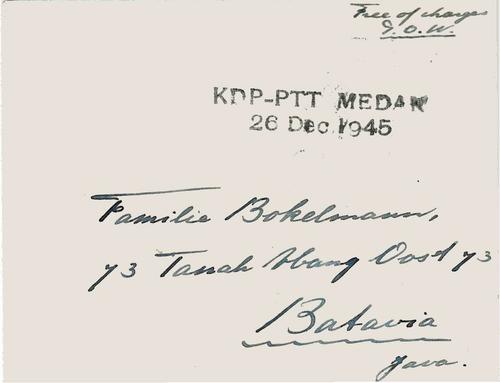 Free of charges
P.O.W.
KDP-PTT MEDAN
26 Dec 1945
Familie Bokelmann,
73 Tanah Abang Oost 73
Batavia
Java.